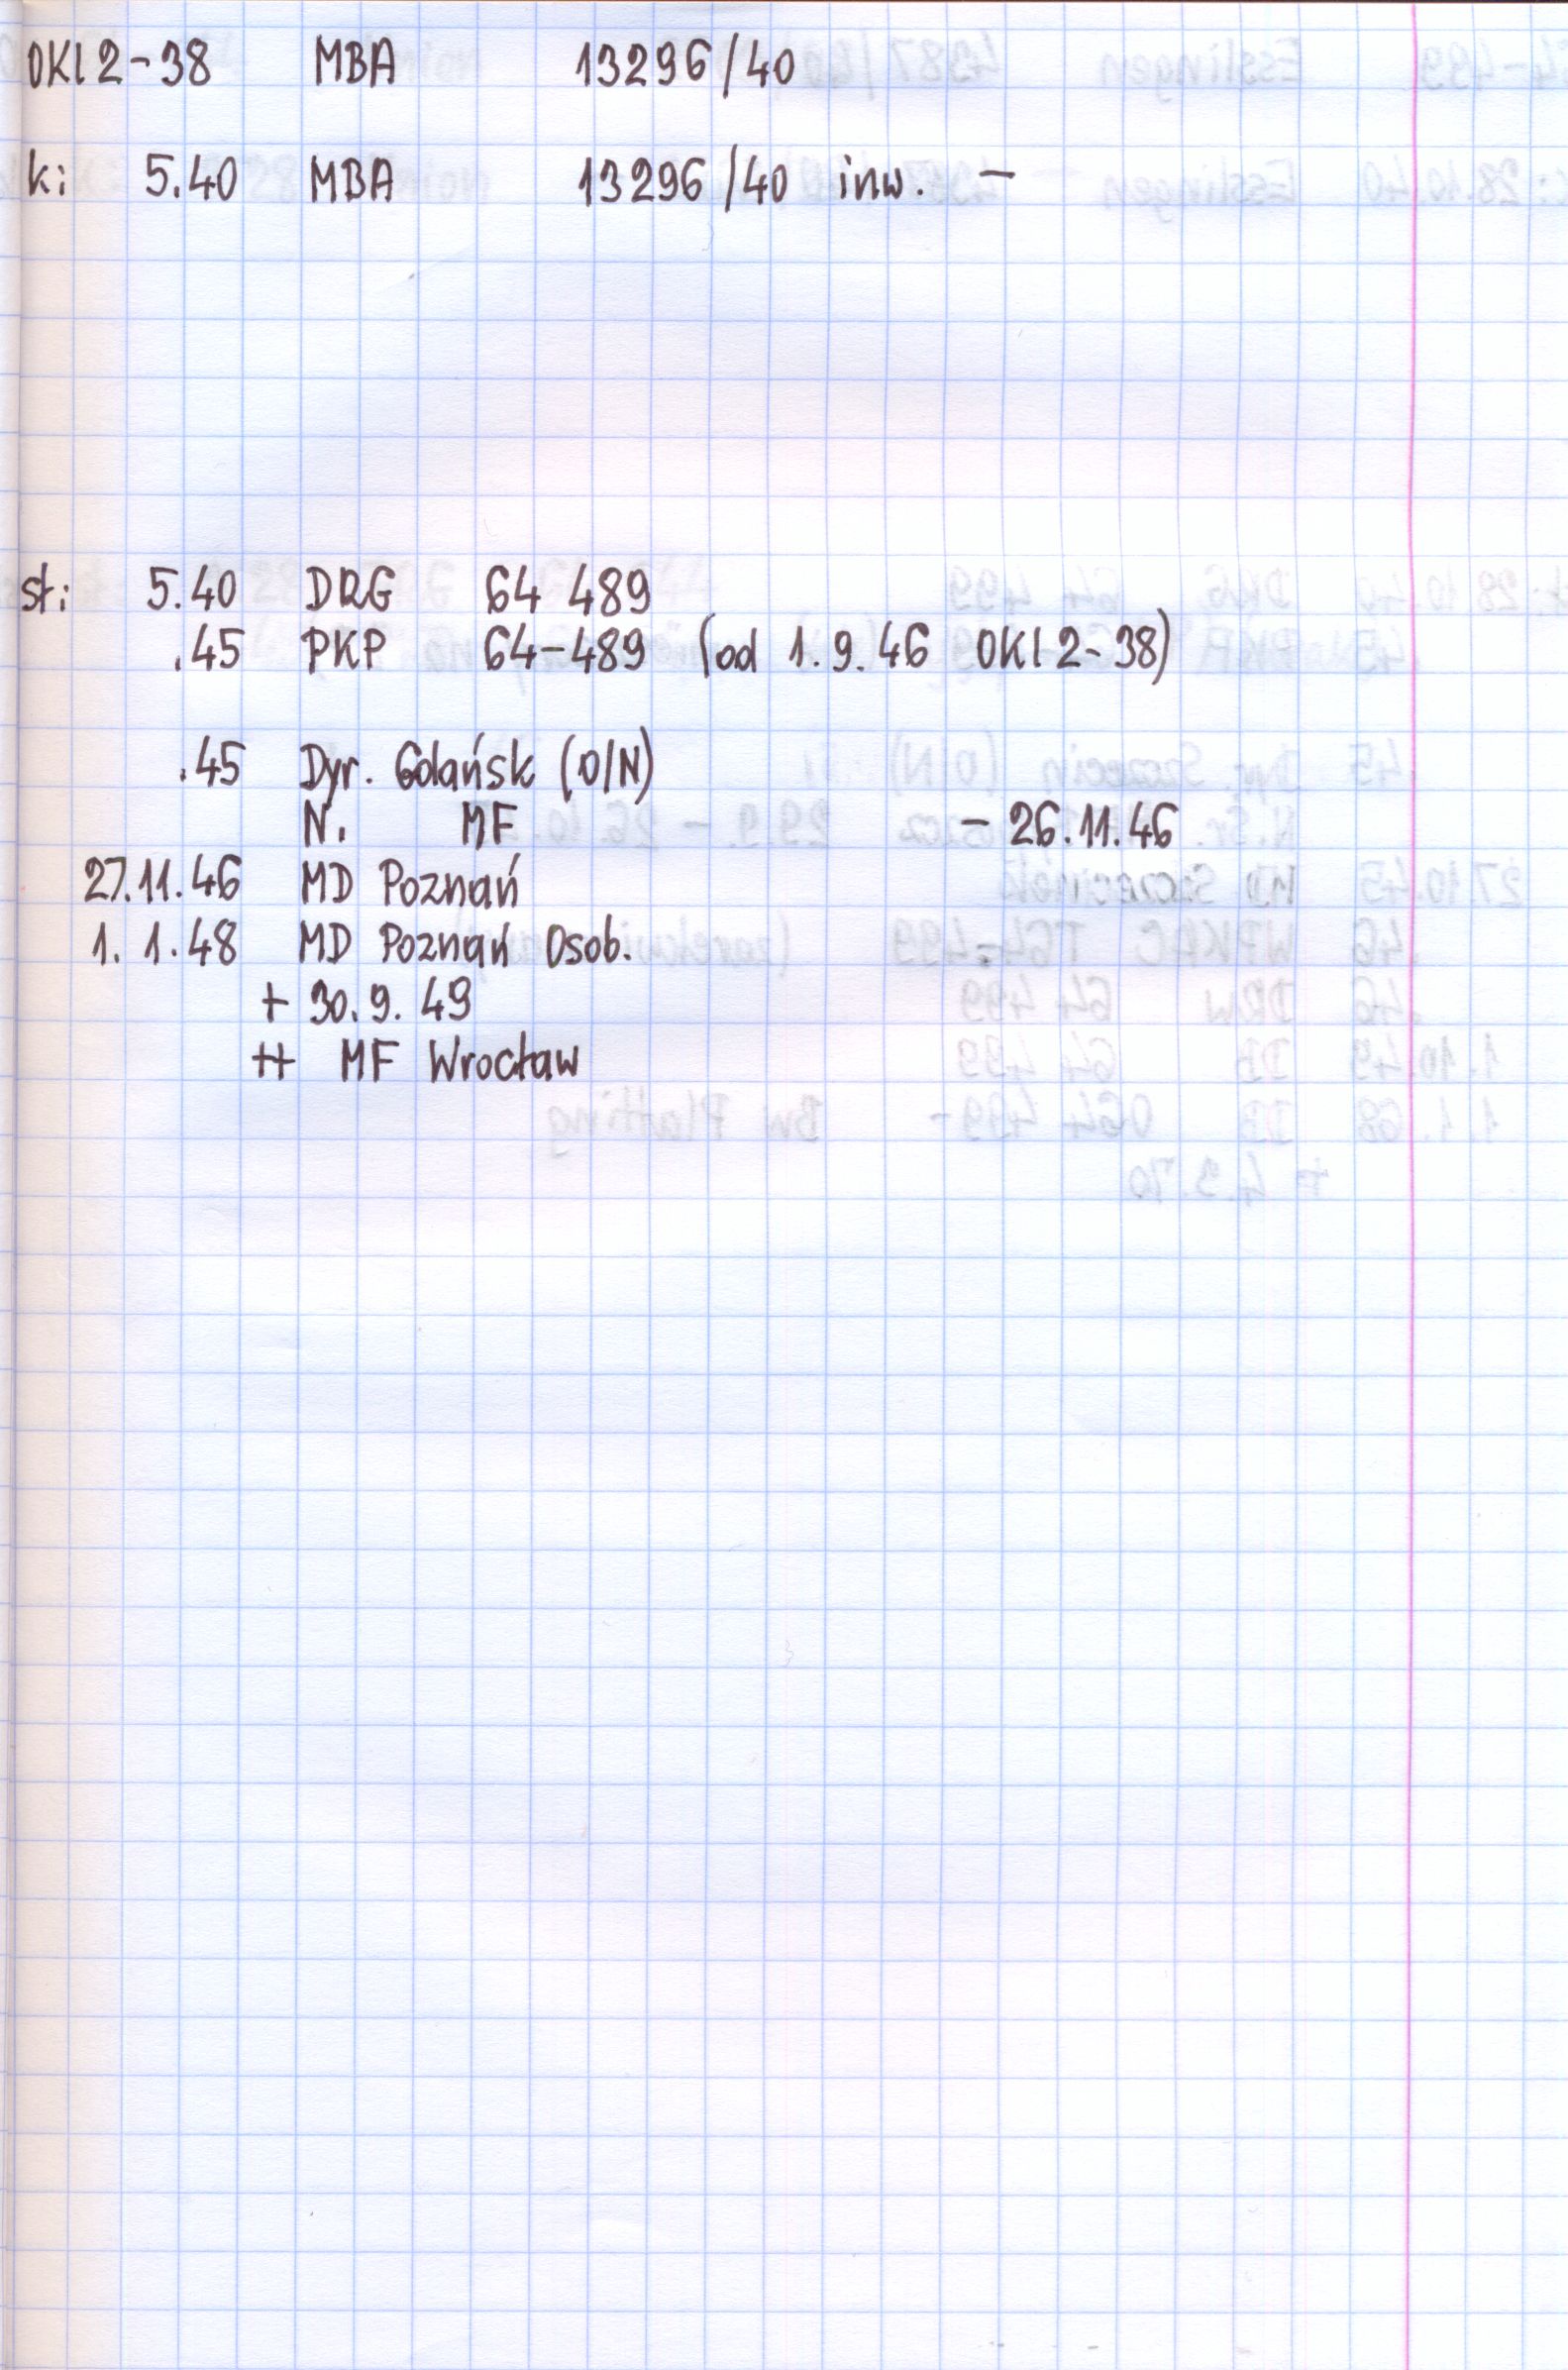 OKl2-38 MBA 13296/40
k: 5.40 MBA 13296/40 inw. -
sł: 5.40 DRG 64 489
.45 PKP 64-489 (od 1.9.46 OKl2-38)
.45 Dyr. Gdańsk (O/N)
N. MF - 26.11.46
27.11.46 MD Poznań
1. 1.48 MD Poznań Osob.
+ 30.9.49
++ MF Wrocław